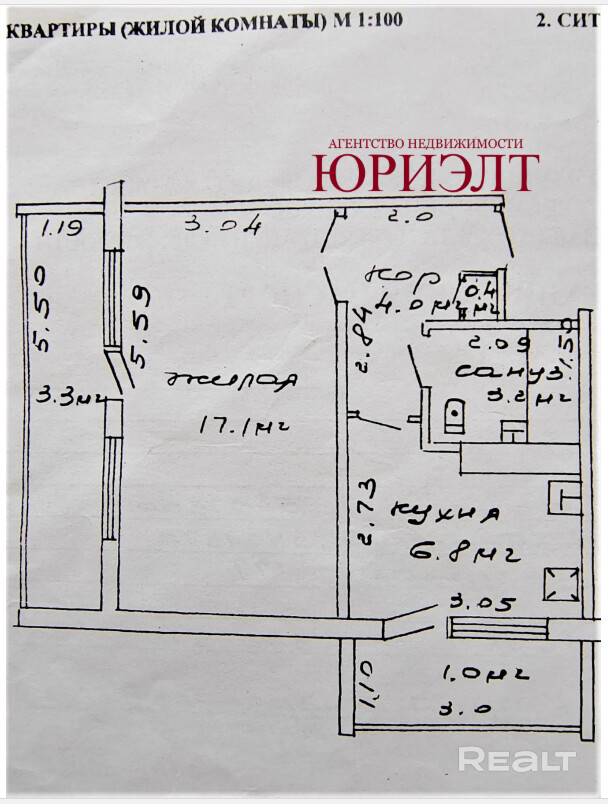 КВАРТИРЫ (ЖИЛОЙ КОМНАТЫ) М 1:100
2. СИТ
АГЕНТСТВО НЕДВИЖИМОСТИ
ЮРИЭЛТ
1.19
3.04
2.0
5.50
5.59
кор
4.0 м2
0.4
м2
2.84
2.09
1.50
сануз
3.2 м2
3.3 м2
жилая
17.1 м2
2.73
кухня
6.8 м2
3.05
1.10
1.0 м2
3.0
REALT